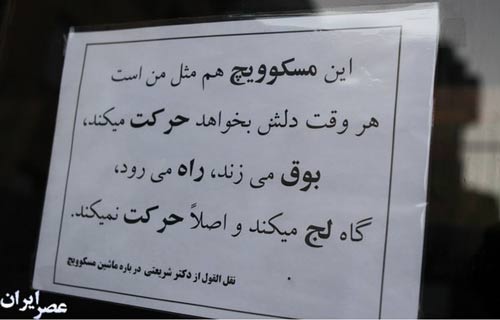 این مسکوویچ هم مثل من است
هر وقت دلش بخواهد حرکت میکند،
بوق می زند، راه می رود،
گاه لج میکند و اصلاً حرکت نمیکند.
نقل القول از دکتر شریعتی درباره ماشین مسکوویچ
عصر ایران